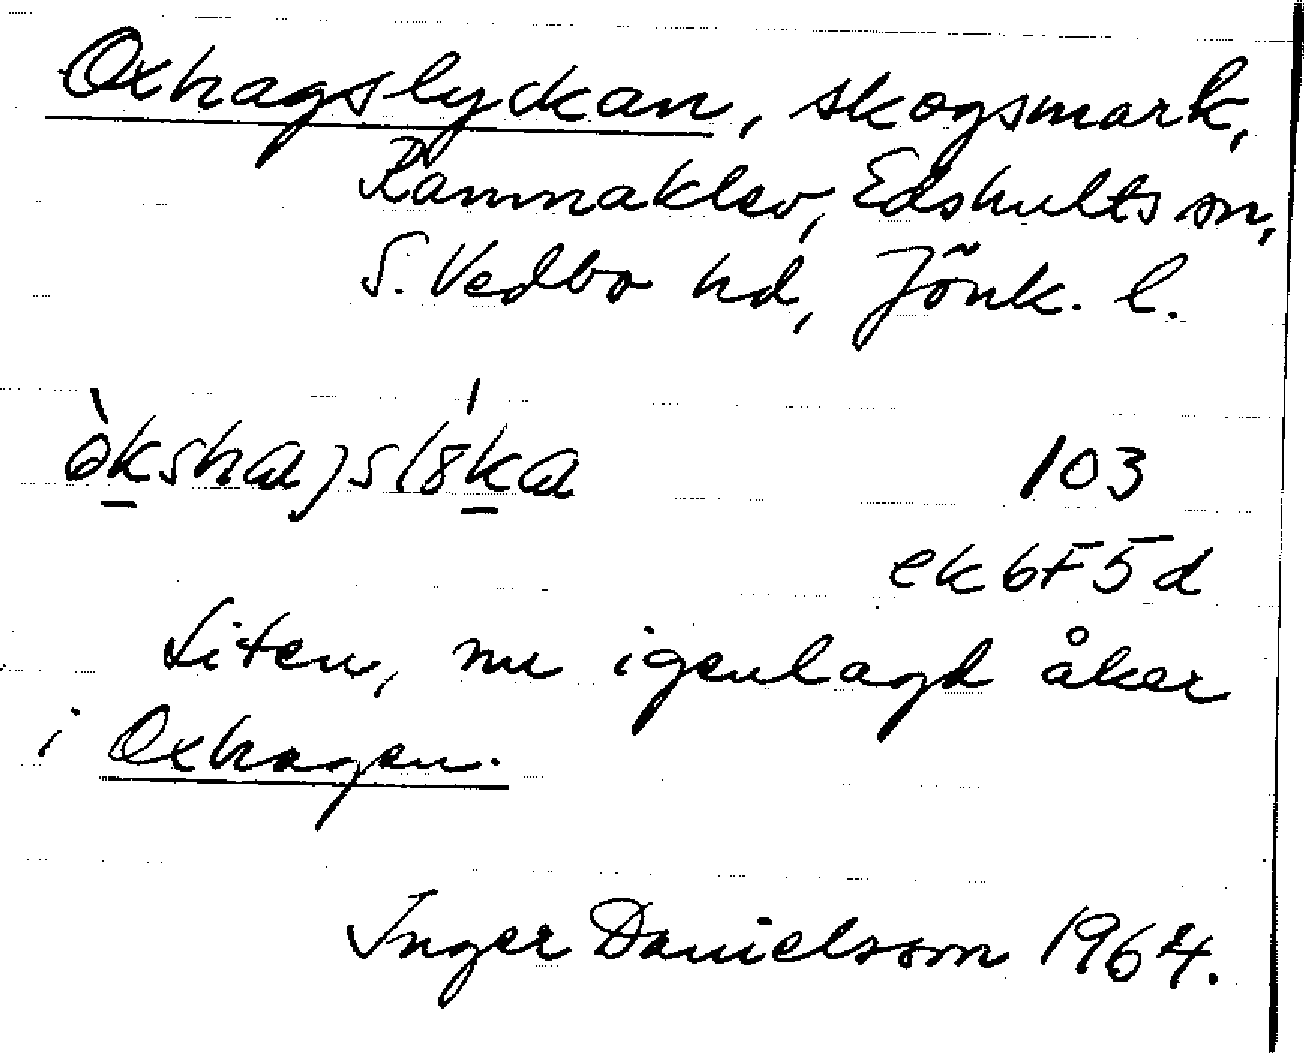 Oxhagslyckan, skogsmark,
Ramnaklev, Edshults sn,
S. Vedbo hd, Jönk. l.
103
ek 6F5d
Liten, nu igenlagd åker
i Oxhagen.
Inger Danielsson 1964.